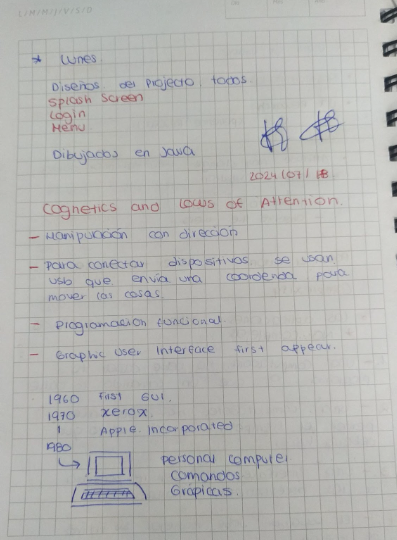 * Lunes.
Diseños del Projecto todos
Splash Screen
Login
Menu
Dibujados en Java
2024/07/18.
Cognetics and Locus of Attention.
- Manipulación con dirección
- Para conectar dispositivos se usan
usb que envia una coordenda para
mover las cosas.
- Programación funcional
- Graphic User Interface first appear.
1960 first GUI.
1970 xerox.
| Apple Incorporated
1980
personal computer
comandos
Graficas.